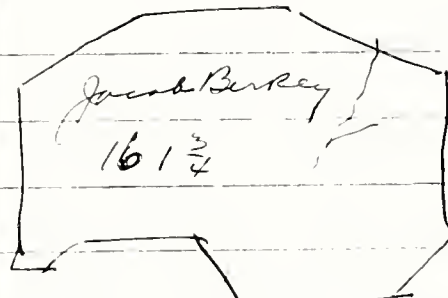 Jacob Berkey
161 3/4